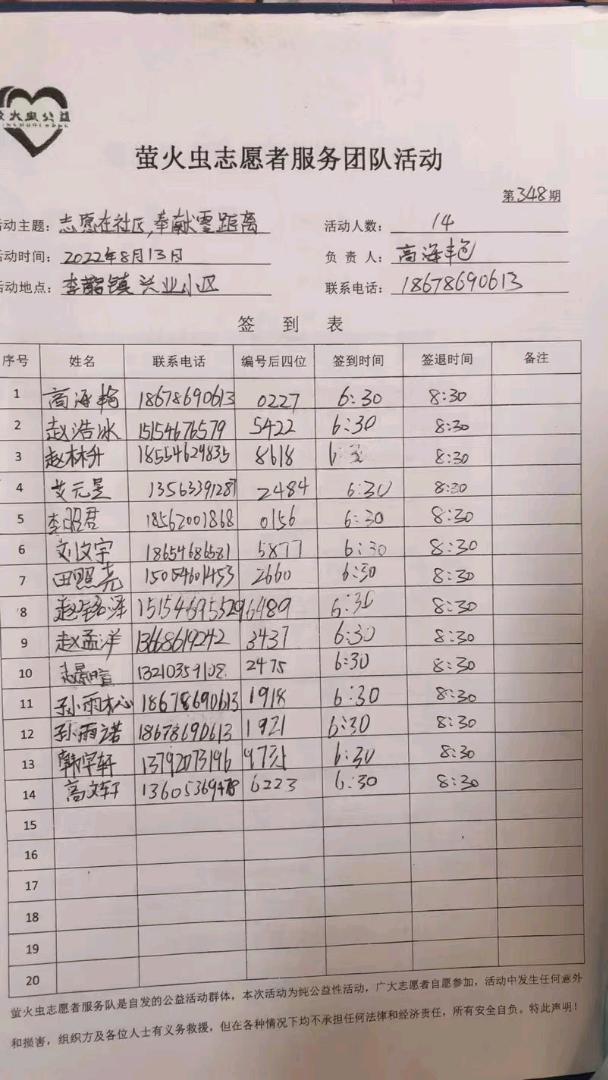 火虫公益
萤火虫志愿者服务团队活动
第348期
活动主题：志愿在社区,奉献零距离 活动人数： 14
活动时间：2022年8月13日 负责人：高海艳
活动地点：李鹊镇兴业小区 联系电话：18678690613
签到表
序号 姓名 联系电话 编号后四位 签到时间 签退时间 备注
1 高海艳 18678690613 0227 6:30 8:30
2 赵浩冰 15154676579 5422 6:30 8:30
3 赵林升 18554629835 8618 8:30
4 艾元星 13563391287 2484 6:30 8:30
5 李昭君 18562001868 0156 6:30 8:30
6 刘文宇 18654686581 5877 6:30 8:30
7 田照亮 15054601453 2660 6:30 8:30
8 15154695329 6489 6:30 8:30
9 赵孟洋 13668619242 3437 6:30 8:30
10 2475 6:30 8:30
11 孙雨心 18678690613 1918 6:30 8:30
12 孙雨诺 18678690613 1921 6:30 8:30
13 韩宇轩 13792073196 6:30 8:30
14 高文轩 13605369478 6223 6:30 8:30
15
16
17
18
19
20
萤火虫志愿者服务队是自发的公益活动群体，本次活动为纯公益性活动，广大志愿者自愿参加，活动中发生任何意外
和损害，组织方及各位人士有义务救援，但在各种情况下均不承担任何法律和经济责任，所有安全自负。特此声明！